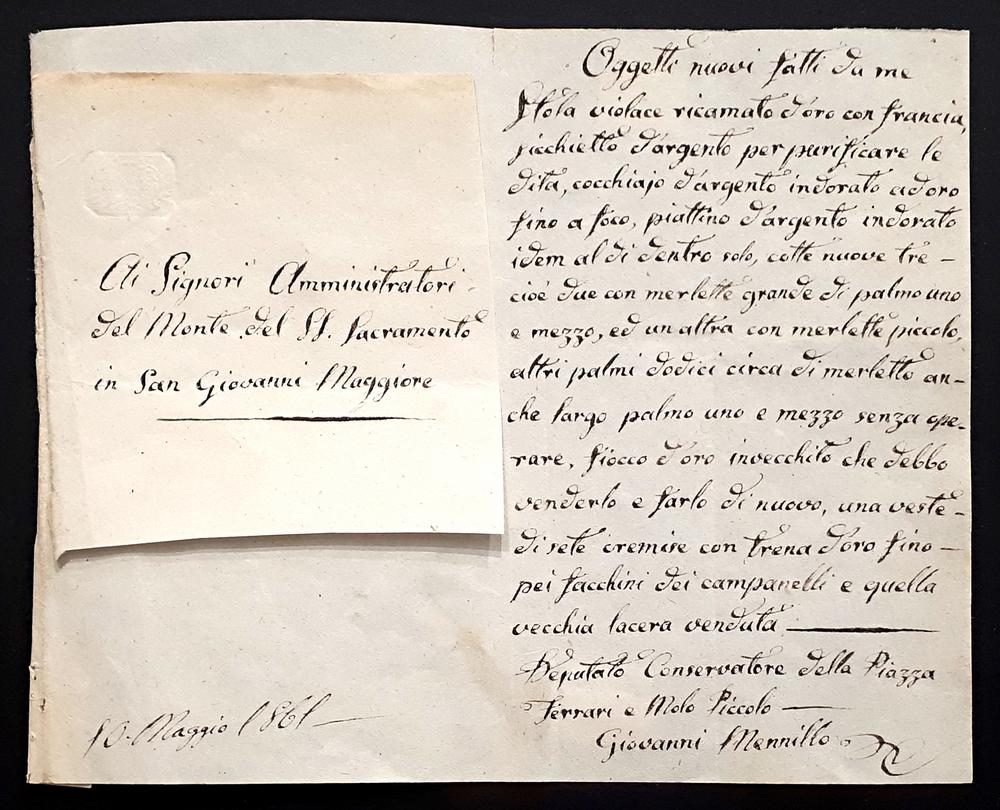 Ai Signori Amministratori
del Monte del SS. Sacramento
in San Giovanni Maggiore
10. Maggio 1861
Oggetti nuovi fatti da me
Stola violace ricamato d'oro con francia,
sicchietto d'argento per purificare le
dita, cocchiajo d'argento indorato ad oro
fino a foco, piattino d'argento indorato
idem al di dentro solo, cotte nuove tre -
cioè due con merlette grande di palmo uno
e mezzo, ed un altra con merlette piccolo,
altri palmi dodici circa di merletto an-
che largo palmo uno e mezzo senza ope-
rare, fiocco d'oro invecchito che debbo
venderlo e farlo di nuovo, una veste -
di sete cremise con trena d'oro fino -
pei facchini dei campanelli e quella
vecchia lacera venduta
Deputato Conservatore della Piazza
Ferrari e Molo Piccolo
Giovanni Mennillo